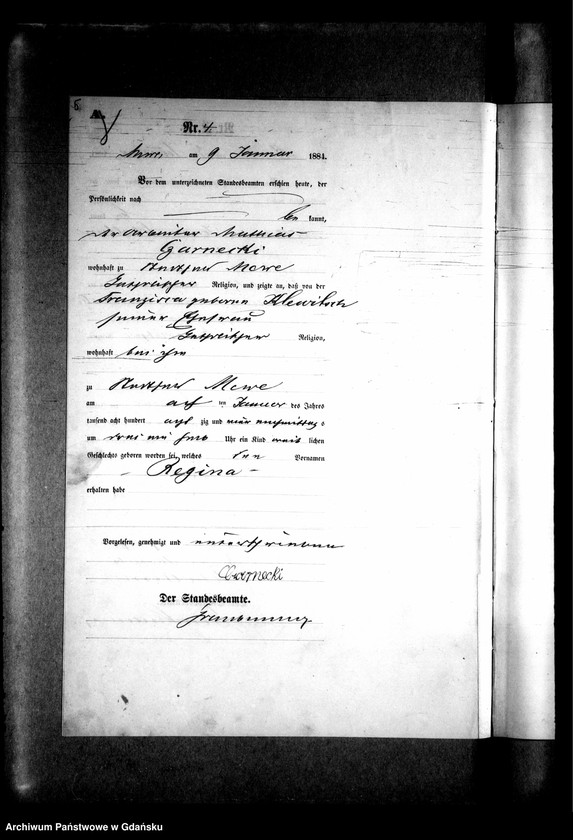 5
A.
Nr. 4
Mewe, am 9 Januar 1884.
Vor dem unterzeichneten Standesbeamten erschien heute, der
Persönlichkeit nach
be kannt,
der Arbeiter Mathias
Garnecki
wohnhaft zu Mewe
katholischer Religion, und zeigte an, daß von der
Franziska geborne
seiner Ehefrau
katholischer Religion,
wohnhaft bei ihm
zu Mewe
am ten Januar des Jahres
tausend acht hundert acht zig und vier nachmittags
um drei ein halb Uhr ein Kind weib lichen
Geschlechts geboren worden sei, welches den Vornamen
Regina
erhalten habe
Vorgelesen, genehmigt und unterschrieben
Garnecki
Der Standesbeamte.
Archiwum Państwowe w Gdańsku